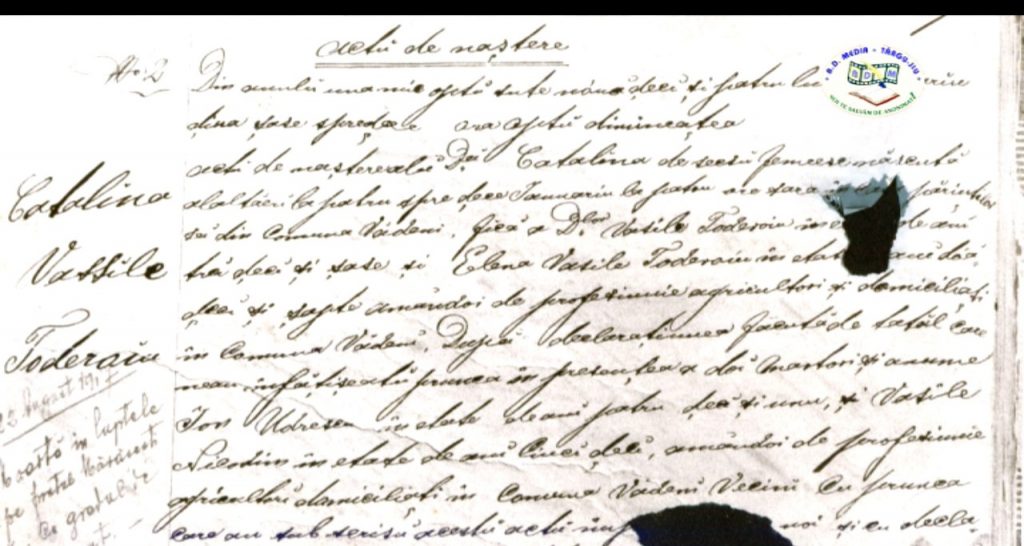 Actu de naștere
No. 2
Din anulu una mie optu sute nóua deci și patru lu
dina șase spredece ora optu dimineața
actu de naștere alŭ D. Catalina de secsu femeesc născută
alaltăeri la patru spre dece Ianuariu la patru ore sara părintilor
sei din comuna Vădeni, fiică a D. Vasile Toderoiu în de ani
trei deci și șase și Elena Vasile Toderoiu în etate ani doă
deci și șapte amândoi de profesiunie agricultori și domiciliați
în Comuna Vădeni, După declarațiunea făcută de tatăl care
neau înfățișeatŭ prunca în presența a doi martori și anume
Ion Udrescu în etate de ani patru deci și unu, și Vasile
Nicodim în etate de ani cinci deci, amândoi de profesiunie
agricultori domiciliați în Comuna Vădeni Vecini cu prunca
care au sub scrisŭ acestŭ actŭ noi și cu decla
Catalina
Vassile
Toderoiu
22 August 1917
în luptele
pe frontul Mărăsesti
cu gradul
R.D. MEDIA - TÂRGU-JIU
R D M